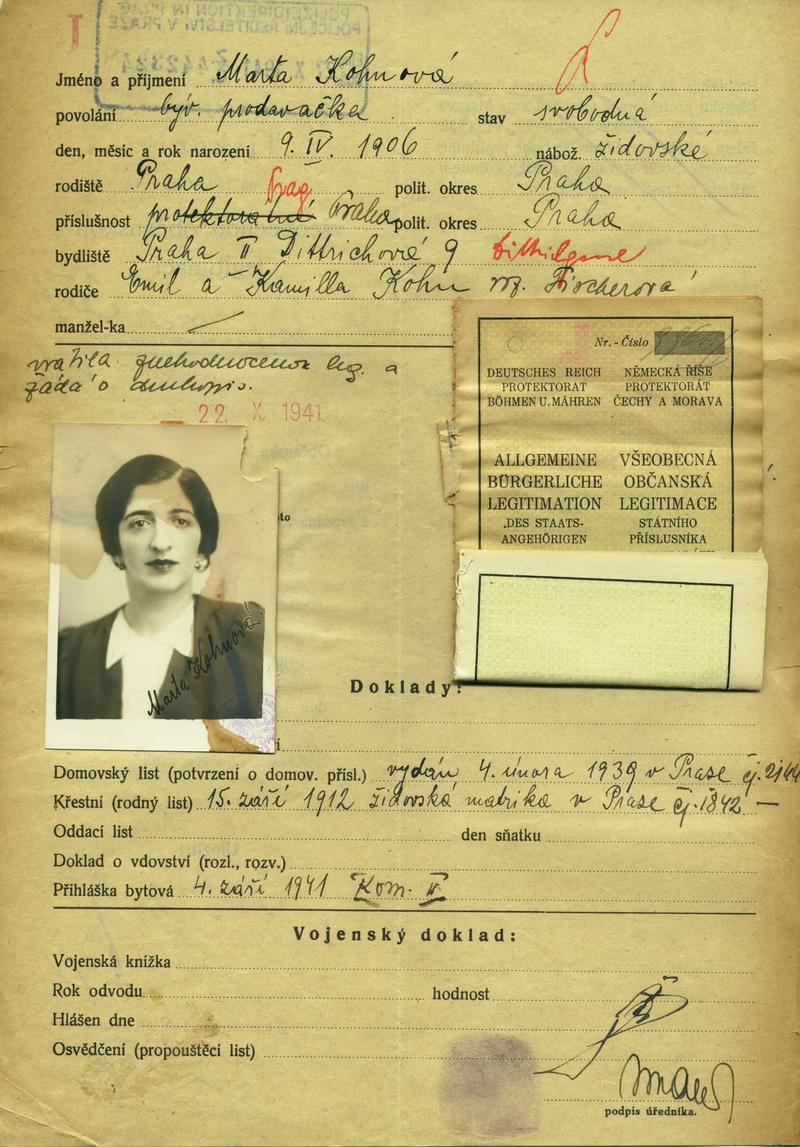 T
Jméno a příjmení Marta Kohnová
povolání býv. prodavačka stav svobodná
den, měsíc a rok narození 9. IV. 1906 nábož. židovské
rodiště Praha Prag polit. okres Praha
příslušnost protektorátní Praha polit. okres Praha
bydliště Praha II Dittrichova 9
rodiče Emil a Kamilla Kohn roz. Fischerová
manžel-ka
vrátila leg. a
žádá o
22. X. 1941
Nr. - Číslo
DEUTSCHES REICH NĚMECKÁ ŘÍŠE
PROTEKTORAT PROTEKTORÁT
BÖHMEN U. MÄHREN ČECHY A MORAVA
ALLGEMEINE VŠEOBECNÁ
BÜRGERLICHE OBČANSKÁ
LEGITIMATION LEGITIMACE
DES STAATS- STÁTNÍHO
ANGEHÖRIGEN PŘÍSLUSNÍKA
Marta Kohnová
Doklady:
Domovský list (potvrzení o domov. přísl.) vydán 4. února 1939 v Praze čj.
Křestní (rodný list) 15. září 1912 židovská matrika v Praze čj. 1842 —
Oddací list den sňatku
Doklad o vdovství (rozl., rozv.)
Přihláška bytová 4. září 1941 Kom. II.
Vojenský doklad:
Vojenská knížka
Rok odvodu hodnost
Hlášen dne
Osvědčení (propouštěcí list)
podpis úředníka.